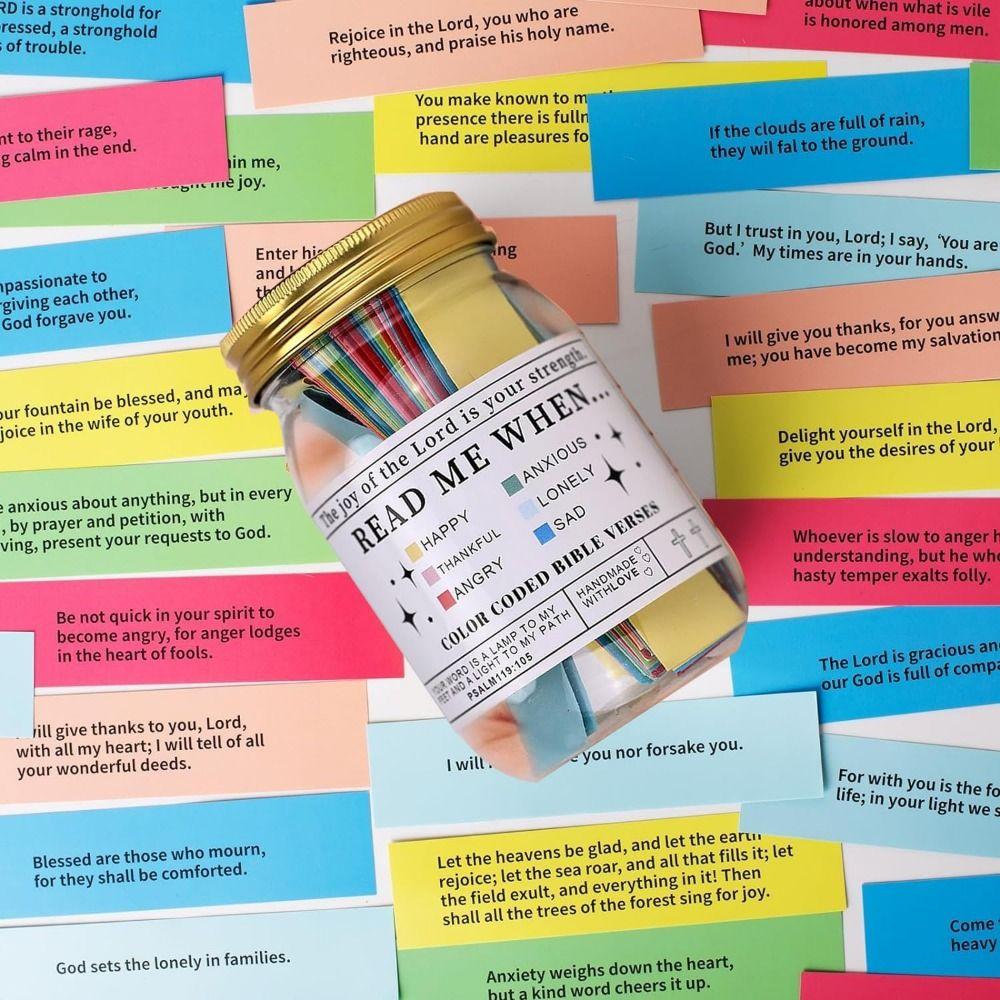 RD is a stronghold for
ressed, a stronghold
of trouble.
Rejoice in the Lord, you who are
righteous, and praise his holy name.
about when what is vile
is honored among men.
nt to their rage,
g calm in the end.
in me,
me joy.
You make known to m
presence there is fulln
hand are pleasures fo
If the clouds are full of rain,
they wil fal to the ground.
But I trust in you, Lord; I say, ‘You are
God.’ My times are in your hands.
Enter his
and
ing
mpassionate to
rgiving each other,
God forgave you.
I will give you thanks, for you answ
me; you have become my salvation
our fountain be blessed, and may
joice in the wife of your youth.
Delight yourself in the Lord,
give you the desires of your
e anxious about anything, but in every
, by prayer and petition, with
ving, present your requests to God.
Whoever is slow to anger h
understanding, but he who
hasty temper exalts folly.
The joy of the Lord is your strength.
READ ME WHEN...
HAPPY
THANKFUL
ANGRY
ANXIOUS
LONELY
SAD
COLOR CODED BIBLE VERSES
YOUR WORD IS A LAMP TO MY
FEET AND A LIGHT TO MY PATH
PSALM119:105
HANDMADE
WITHLOVE
Be not quick in your spirit to
become angry, for anger lodges
in the heart of fools.
The Lord is gracious and
our God is full of compa
will give thanks to you, Lord,
with all my heart; I will tell of all
your wonderful deeds.
I will
you nor forsake you.
For with you is the fo
life; in your light we s
Blessed are those who mourn,
for they shall be comforted.
Let the heavens be glad, and let the earth
rejoice; let the sea roar, and all that fills it; let
the field exult, and everything in it! Then
shall all the trees of the forest sing for joy.
Come
heavy
God sets the lonely in families.
Anxiety weighs down the heart,
but a kind word cheers it up.